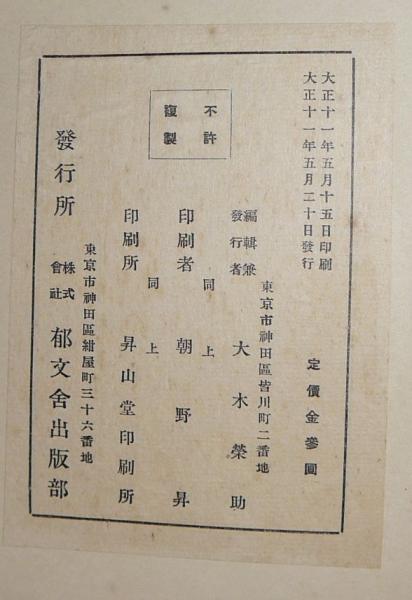 大正十一年五月十五日印刷
大正十一年五月二十日發行
定價金參圓
不許
複製
東京市神田區皆川町二番地
編輯兼
發行者 大木榮助
同上
印刷者 朝野昇
同上
印刷所 昇山堂印刷所
東京市神田區紺屋町三十六番地
發行所 株式會社 郁文舍出版部